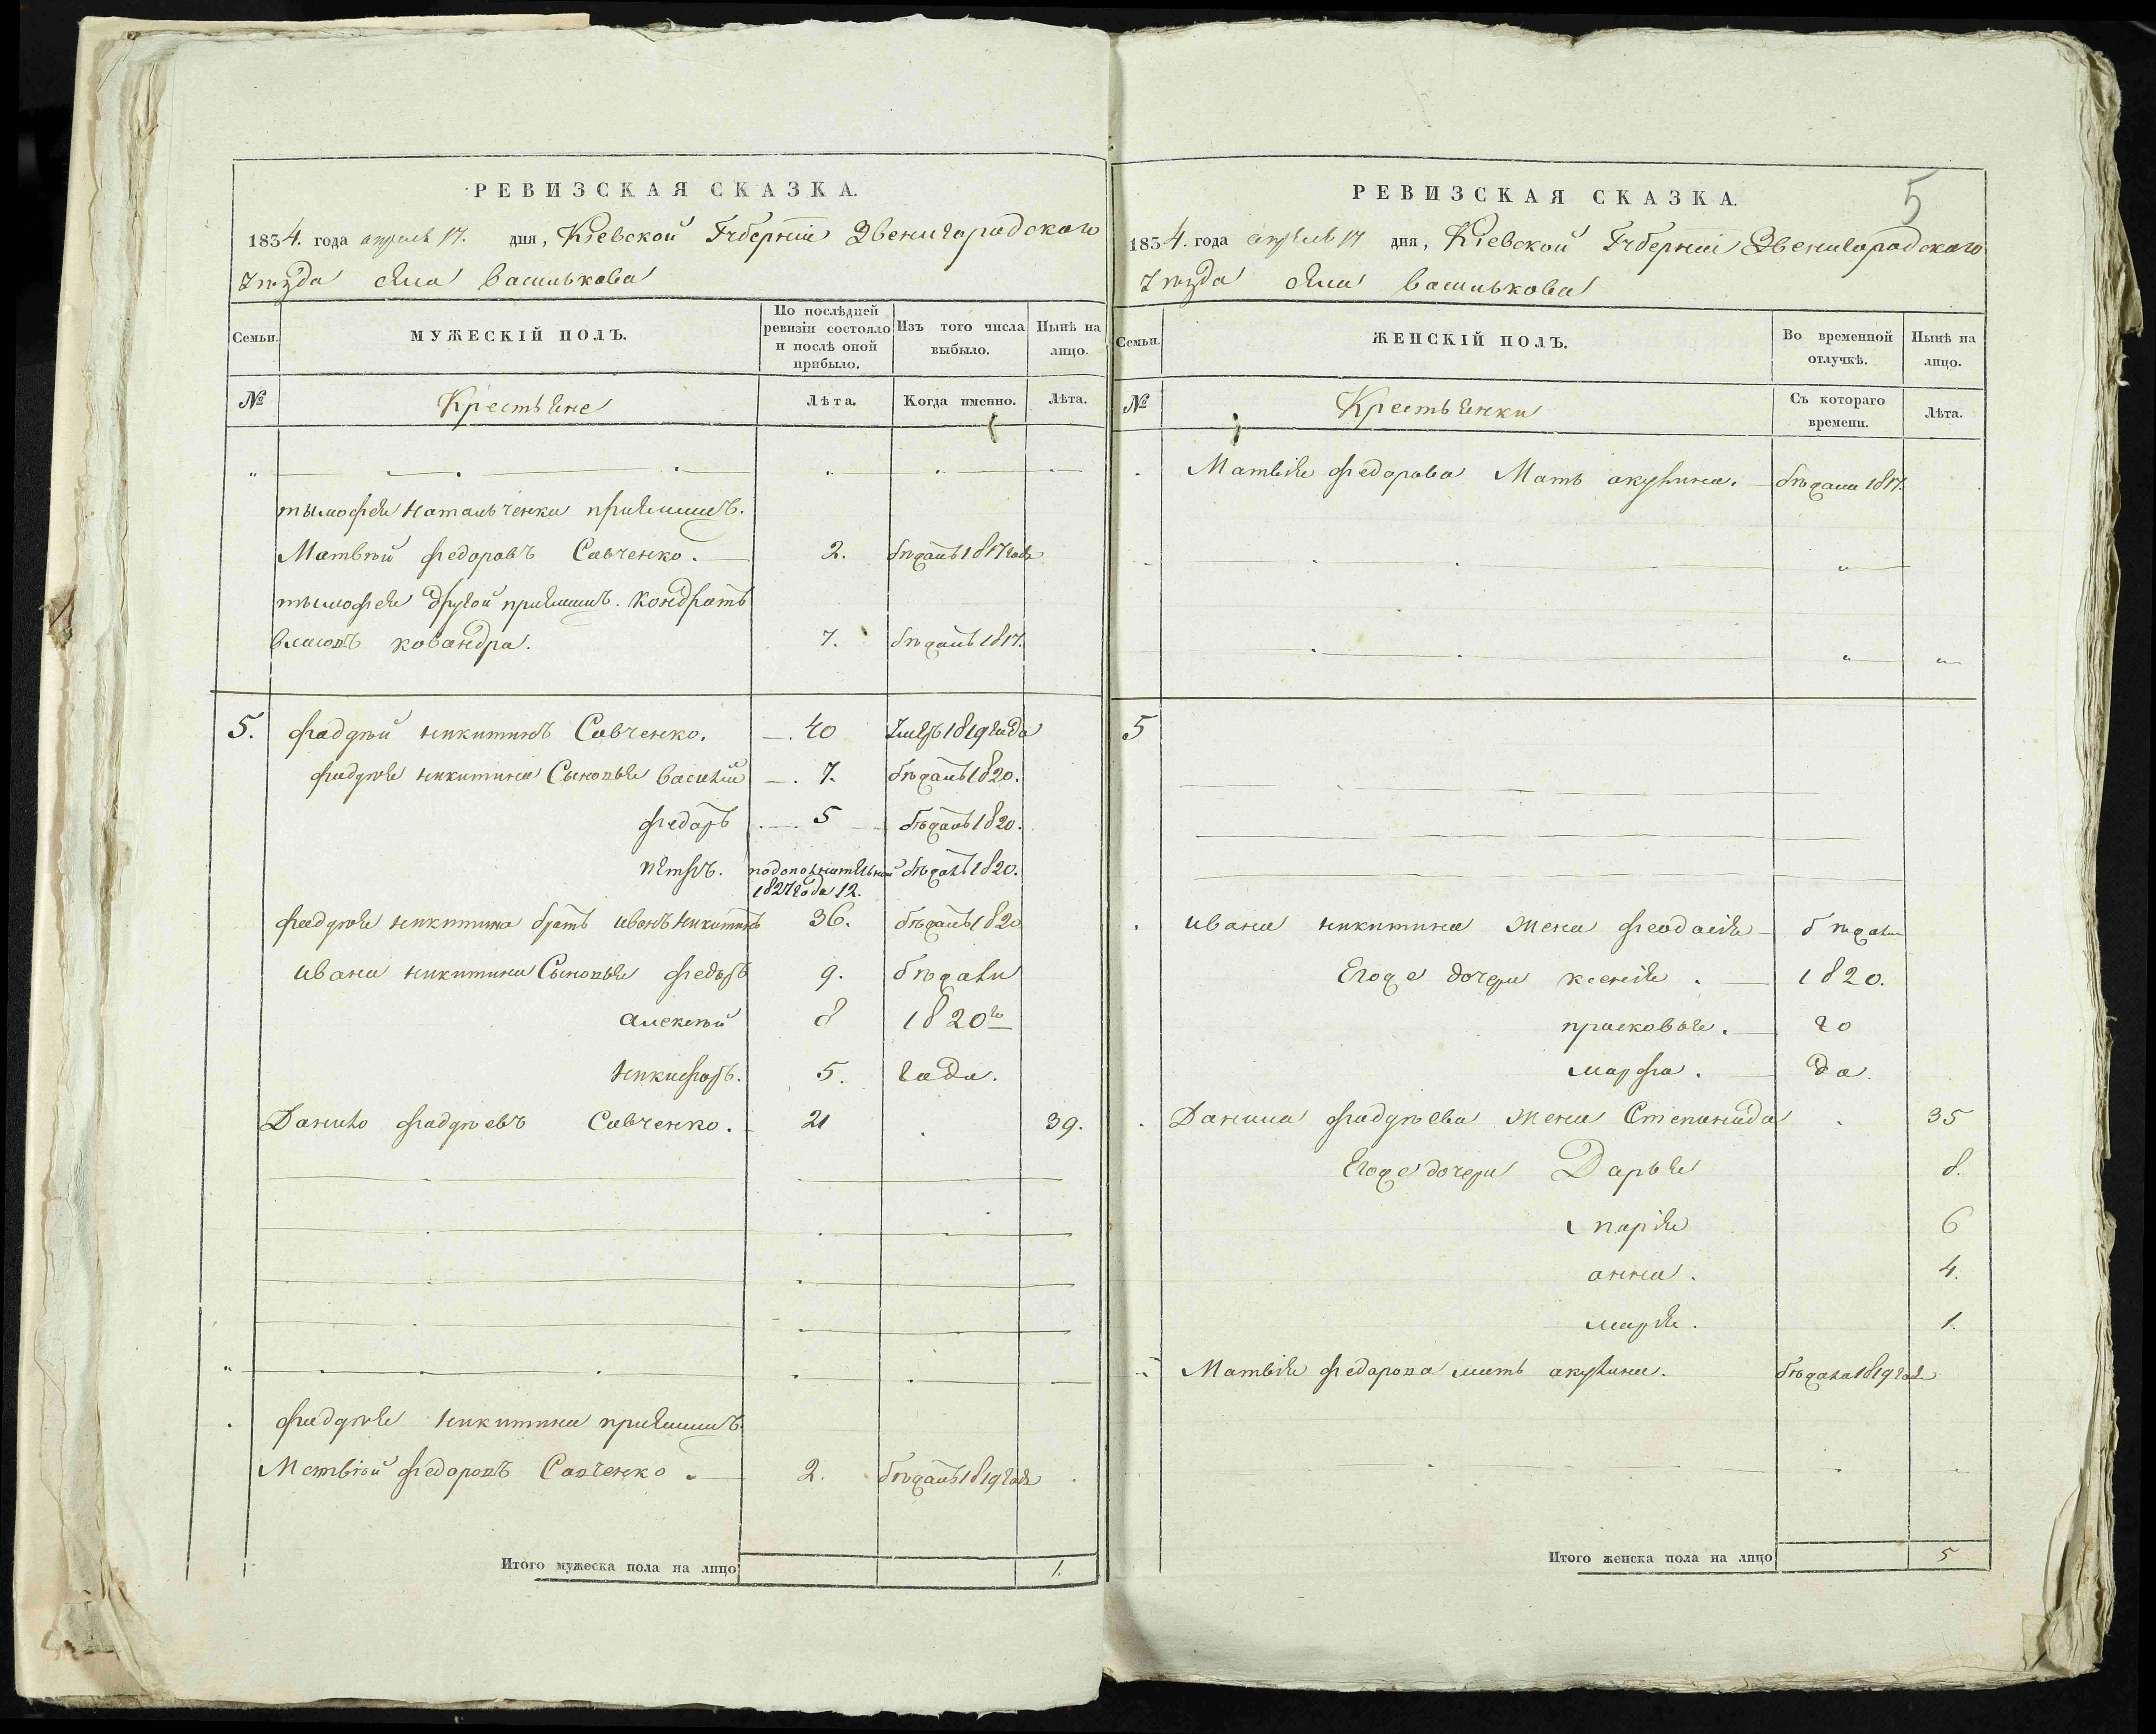 РЕВИЗСКАЯ СКАЗКА.
1834. года апреля 17. дня, Кіевской Губерніи Звенигородского
Уѣзда села Василькова
Семьи.
МУЖЕСКІЙ ПОЛЪ.
По послѣдней
ревизіи состояло
и послѣ оной
прибыло.
Изъ того числа
выбыло.
Нынѣ на
лицо.
№
Крестьяне
Лѣта.
Когда именно.
Лѣта.
тымофея Натальченка приямишъ.
Матвѣй федоровъ Савченко. 2. бѣжалъ 1817 года
тымофея другой приямишъ. Кондратъ
власовъ ковандра. 7. бѣжалъ 1817.
5. фаддѣй никитинъ Савченко. 40 Умеръ 1819 года
фаддѣя никитина Сыновья василій 7. бѣжалъ 1820.
федоръ 5 бѣжалъ 1820.
петръ. подополнительной бѣжалъ 1820.
1827 года 12.
фаддѣя никитина братъ иванъ никитинъ 36. бѣжалъ 1820
ивана никитина Сыновья федоръ 9. бѣжали
алексѣй 8 1820го
никифоръ. 5. года.
Данило фаддѣевъ Савченко. 21 39.
фаддѣя никитина приямишъ.
Матвѣй федоровъ Савченко. 2. бѣжалъ 1819 года
Итого мужеска пола на лицо 1.
5
РЕВИЗСКАЯ СКАЗКА.
1834. года апреля 17 дня, Кіевской Губерніи Звенигородского
Уѣзда села Василькова
Семьи.
ЖЕНСКІЙ ПОЛЪ.
Во временной
отлучкѣ.
Нынѣ на
лицо.
№
Крестьянки
Съ котораго
времени.
Лѣта.
Матвія федорова Мать акулина. бѣжала 1817.
5
ивана никитина жена феодосія бѣжали
Егоже дочери ксенія. 1820.
прасковья. го
марфа. да.
Данила фаддѣева жена Степанида 35
Егоже дочери Дарья 8.
марія 6
анна. 4.
марія. 1.
Матвія федорова мать акулина. бѣжала 1819 года
Итого женска пола на лицо 5